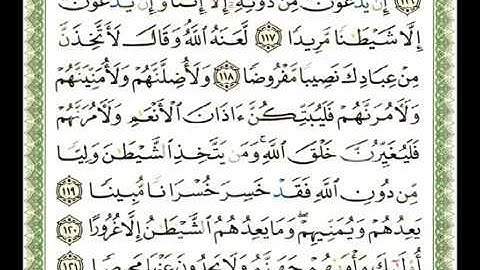 ١١٦ إِن يَدْعُونَ مِن دُونِهِۦٓ إِلَّآ إِنَٰثًا وَإِن يَدْعُونَ
إِلَّا شَيْطَٰنًا مَّرِيدًا ١١٧ لَّعَنَهُ ٱللَّهُ وَقَالَ لَأَتَّخِذَنَّ
مِنْ عِبَادِكَ نَصِيبًا مَّفْرُوضًا ١١٨ وَلَأُضِلَّنَّهُمْ وَلَأُمَنِّيَنَّهُمْ
وَلَءَامُرَنَّهُمْ فَلَيُبَتِّكُنَّ ءَاذَانَ ٱلْأَنْعَٰمِ وَلَءَامُرَنَّهُمْ
فَلَيُغَيِّرُنَّ خَلْقَ ٱللَّهِ ۚ وَمَن يَتَّخِذِ ٱلشَّيْطَٰنَ وَلِيًّا
مِّن دُونِ ٱللَّهِ فَقَدْ خَسِرَ خُسْرَانًا مُّبِينًا ١١٩
يَعِدُهُمْ وَيُمَنِّيهِمْ ۖ وَمَا يَعِدُهُمُ ٱلشَّيْطَٰنُ إِلَّا غُرُورًا ١٢٠
أُو۟لَٰٓئِكَ مَأْوَىٰهُمْ جَهَنَّمُ وَلَا يَجِدُونَ عَنْهَا مَحِيصًا ١٢١